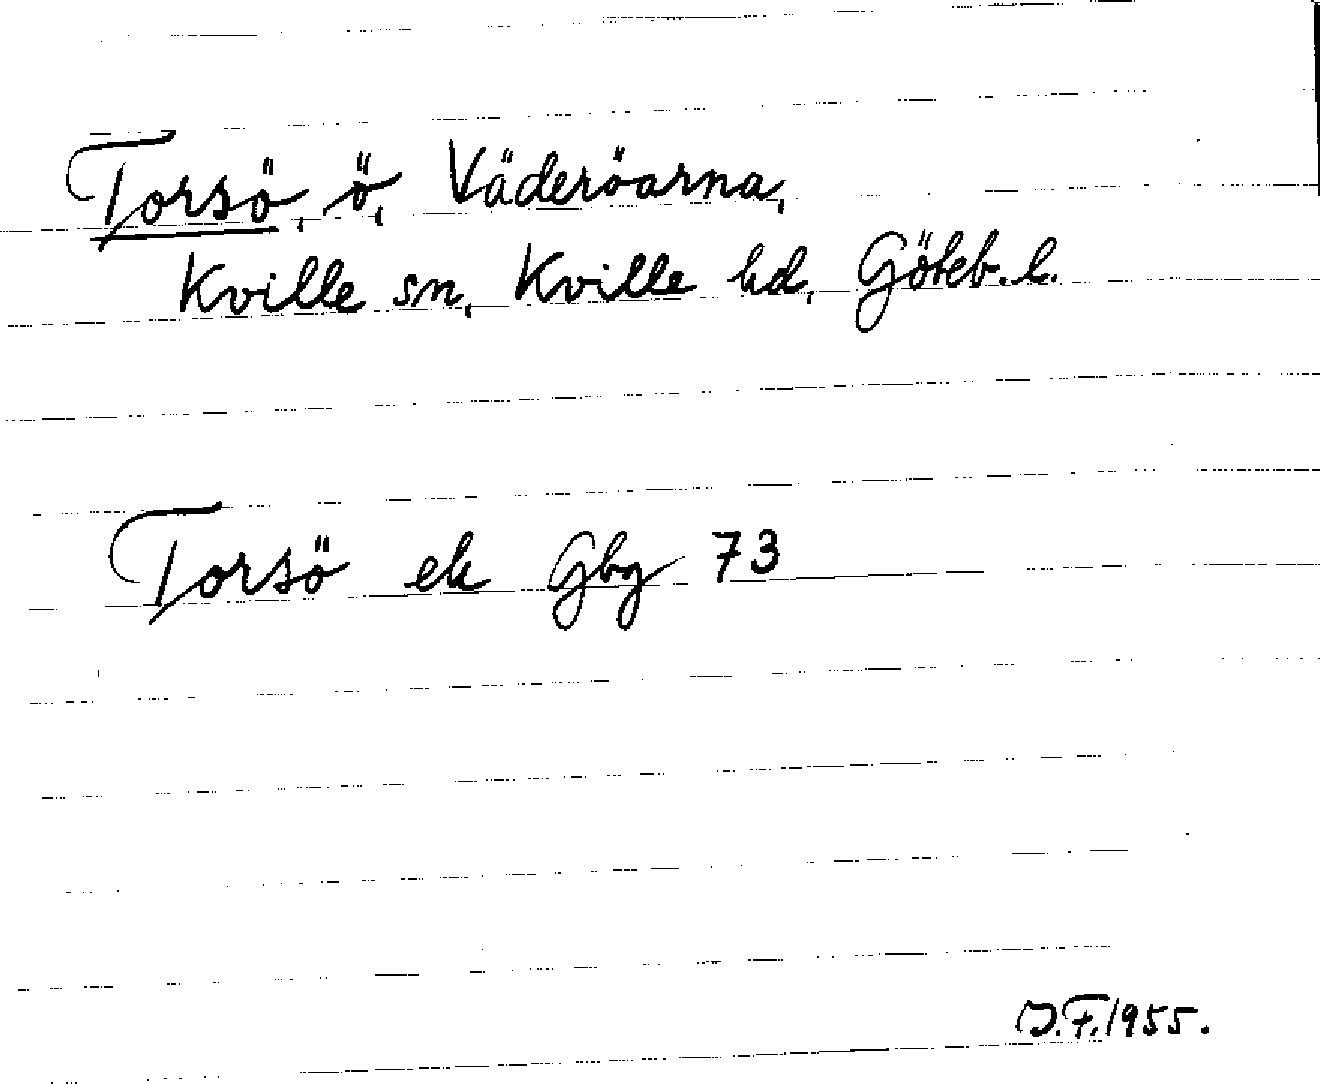 Torsö, ö, Väderöarna,
Kville sn, Kville hd, Göteb. l.
Torsö ek Gbg 73
J.F. 1955.